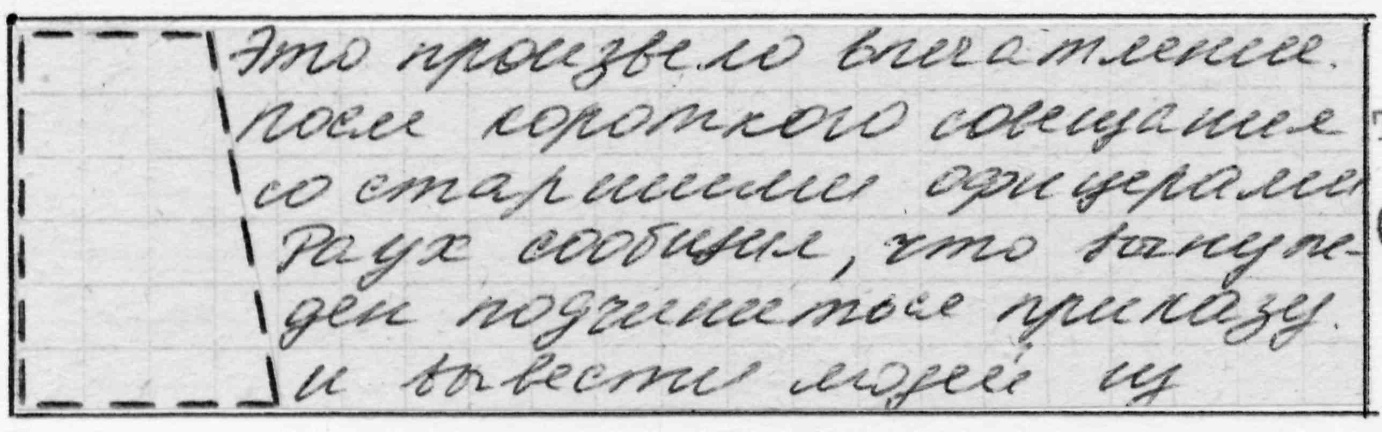 Это произвело впечатление.
После короткого совещания
со старшими офицерами
Раух сообщил, что вынуж-
ден подчиниться приказу
и вывести людей из